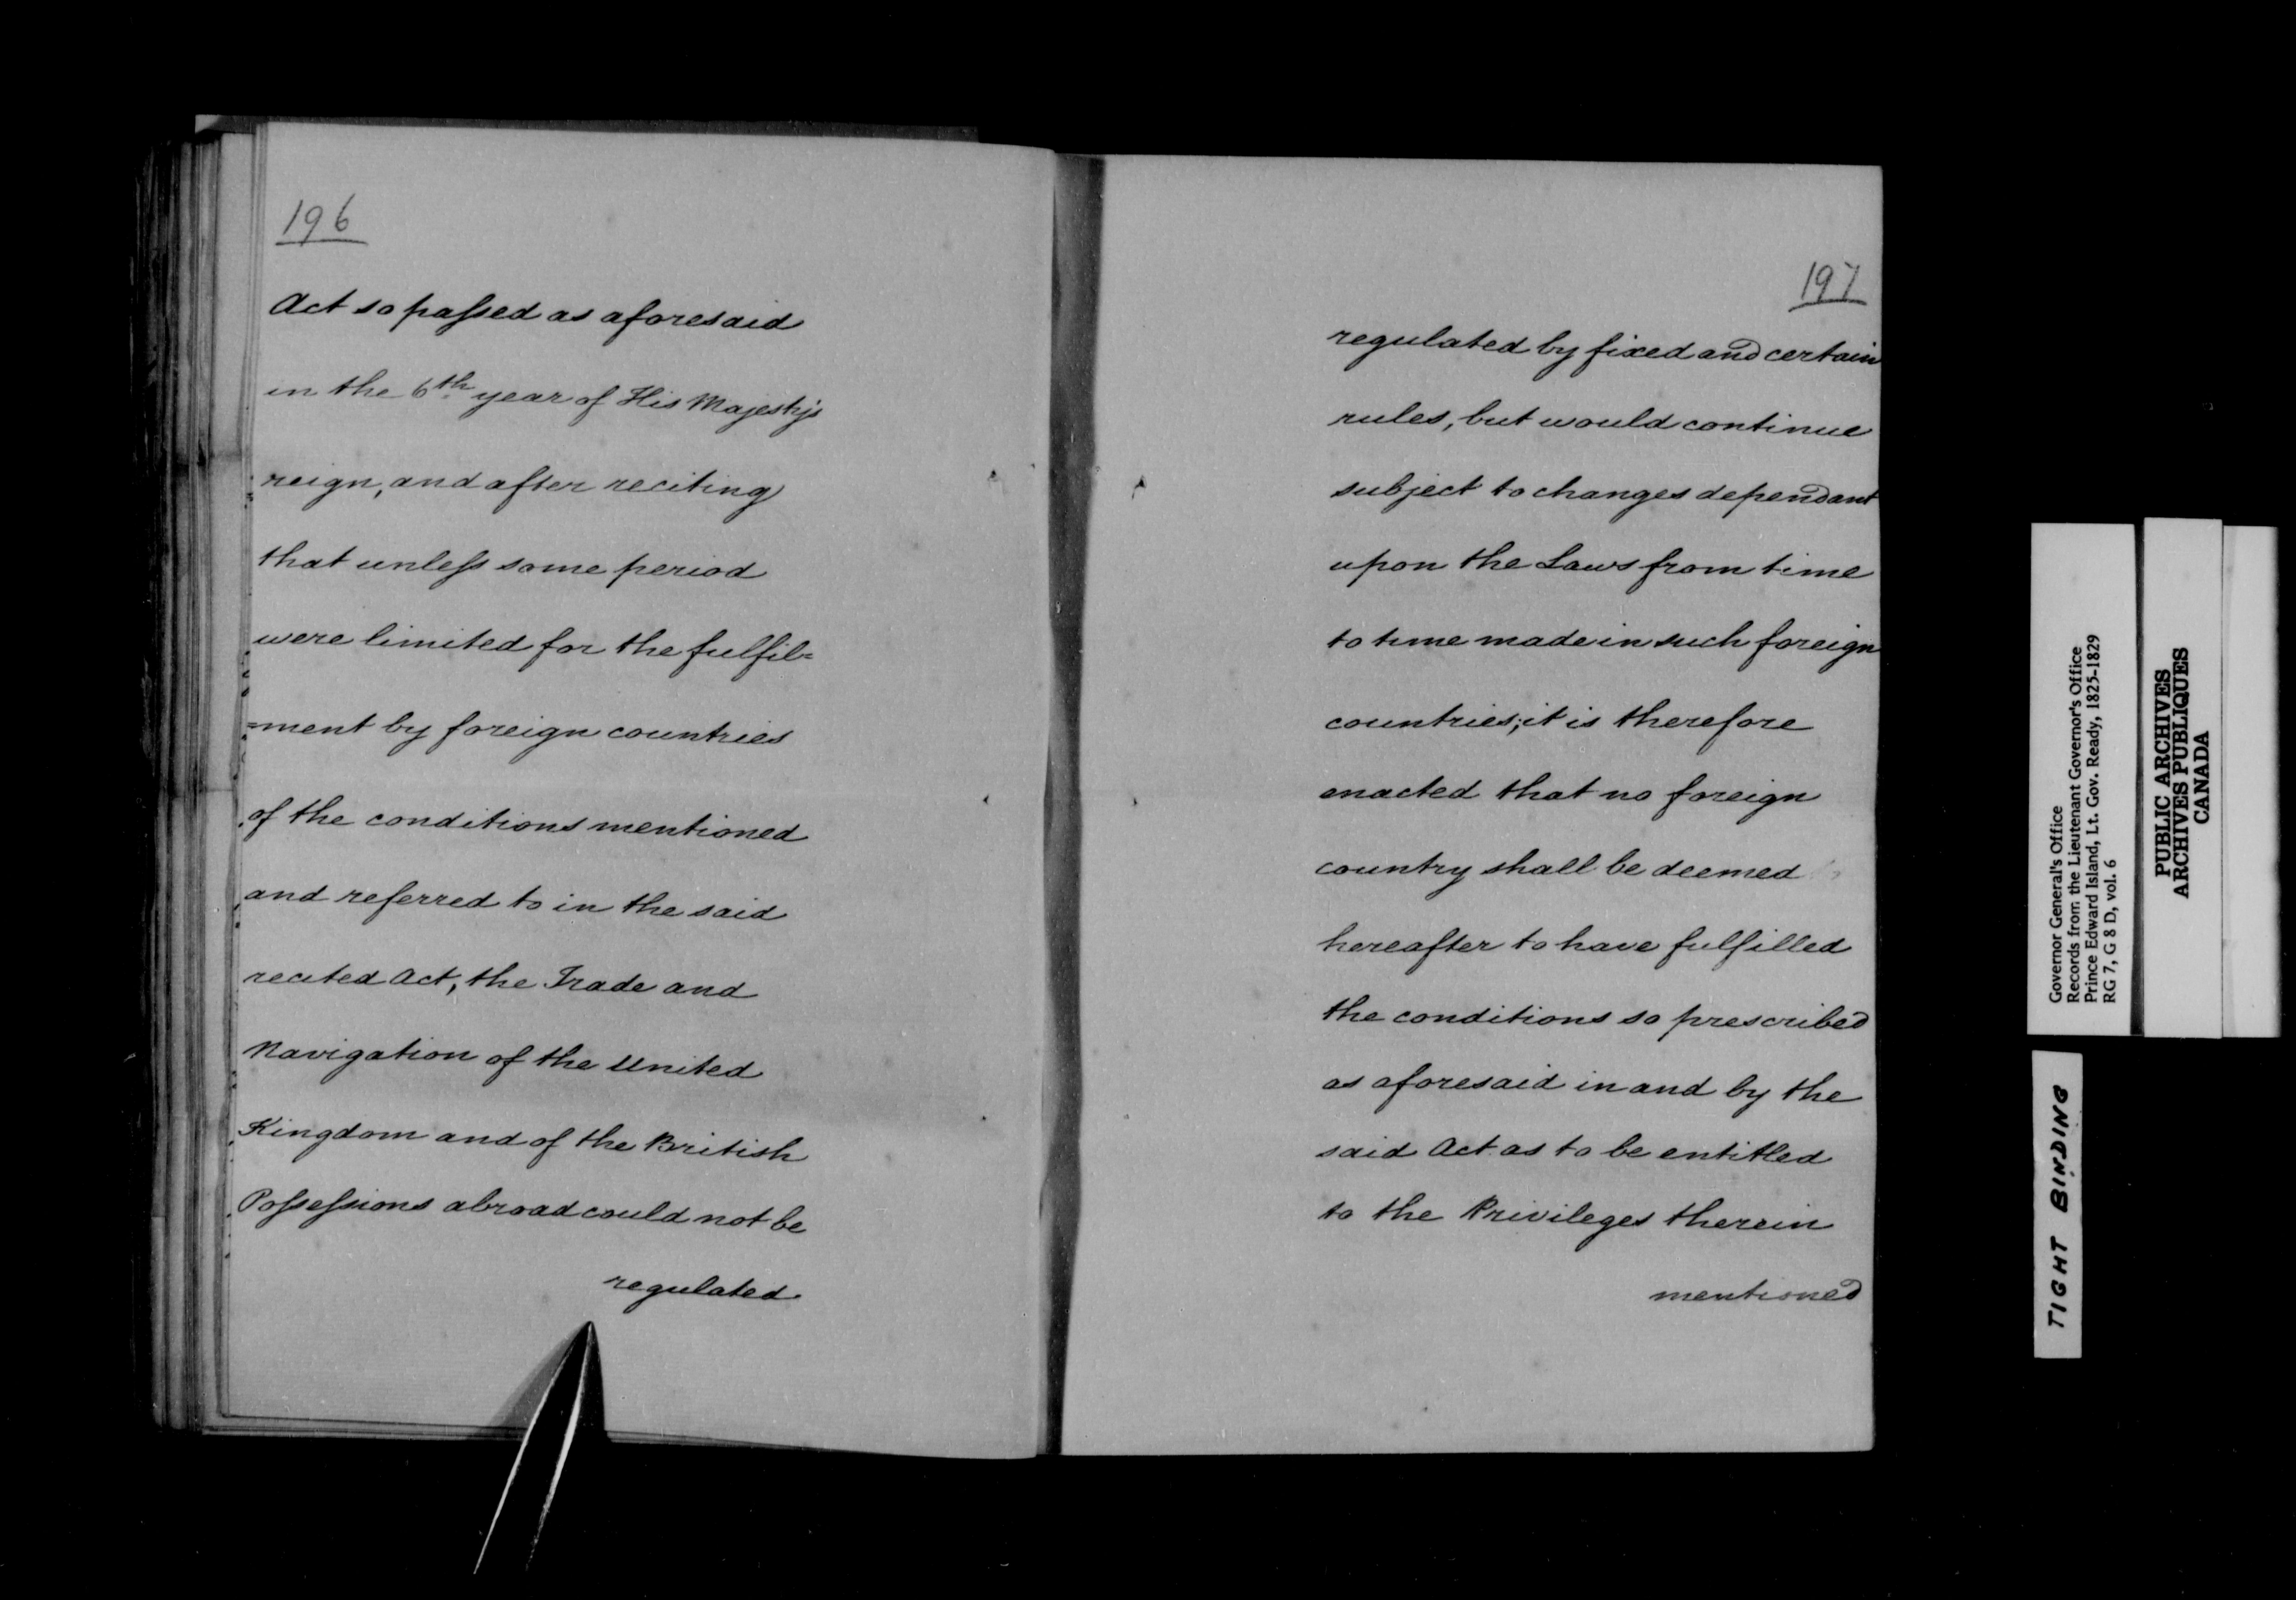 196
Act so passed as aforesaid
in the 6th year of His Majesty's
reign, and after reciting
that unless some period
were limited for the fulfil=
=ment by foreign countries
of the conditions mentioned
and referred to in the said
recited Act, the Trade and
Navigation of the United
Kingdom and of the British
Possessions abroad could not be
regulated
197
regulated by fixed and certain
rules, but would continue
subject to changes dependant
upon the Laws from time
to time made in such foreign
countries; it is therefore
enacted that no foreign
country shall be deemed
hereafter to have fulfilled
the conditions so prescribed
as aforesaid in and by the
said Act as to be entitled
to the Privileges therein
mentioned
Governor General's Office
Records from the Lieutenant Governor's Office
Prince Edward Island, Lt. Gov. Ready, 1825-1829
RG 7, G 8 D, vol. 6
PUBLIC ARCHIVES
ARCHIVES PUBLIQUES
CANADA
TIGHT BINDING